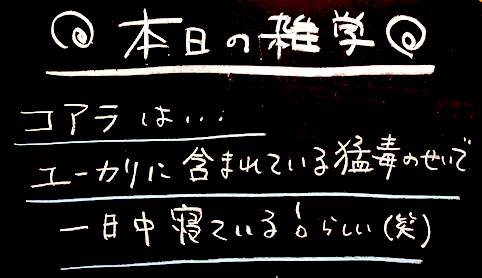 本日の雑学
コアラは...
ユーカリに含まれている猛毒のせいで
一日中寝ている!らしい(笑)